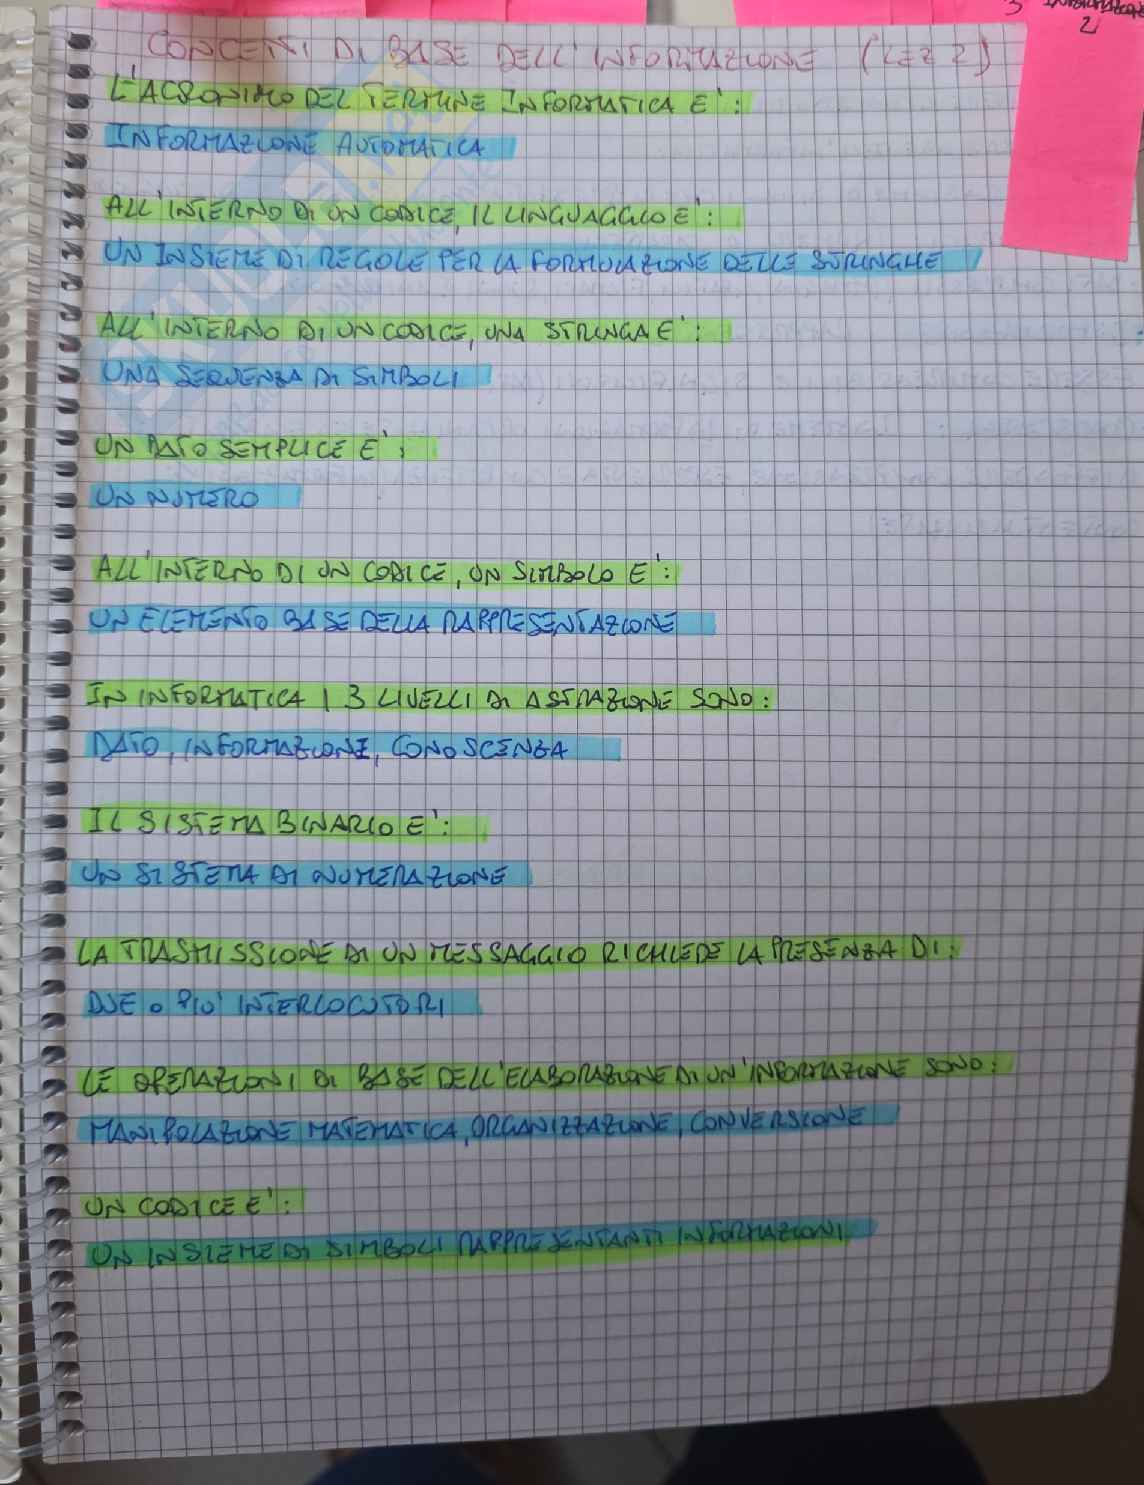 CONCETTI DI BASE DELL'INFORMAZIONE (LEZ 2)
L'ACRONIMO DEL TERMINE INFORMATICA E':
INFORMAZIONE AUTOMATICA
ALL'INTERNO DI UN CODICE, IL LINGUAGGIO E':
UN INSIEME DI REGOLE PER LA FORMULAZIONE DELLE STRINGHE
ALL'INTERNO DI UN CODICE, UNA STRINGA E':
UNA SEQUENZA DI SIMBOLI
UN DATO SEMPLICE E':
UN NUMERO
ALL'INTERNO DI UN CODICE, UN SIMBOLO E':
UN ELEMENTO BASE DELLA RAPPRESENTAZIONE
IN INFORMATICA I 3 LIVELLI DI ASTRAZIONE SONO:
DATO, INFORMAZIONE, CONOSCENZA
IL SISTEMA BINARIO E':
UN SISTEMA DI NUMERAZIONE
LA TRASMISSIONE DI UN MESSAGGIO RICHIEDE LA PRESENZA DI:
DUE O PIU' INTERLOCUTORI
LE OPERAZIONI DI BASE DELL'ELABORAZIONE DI UN'INFORMAZIONE SONO:
MANIPOLAZIONE MATEMATICA, ORGANIZZAZIONE, CONVERSIONE
UN CODICE E':
UN INSIEME DI SIMBOLI RAPPRESENTANTI INFORMAZIONI
2